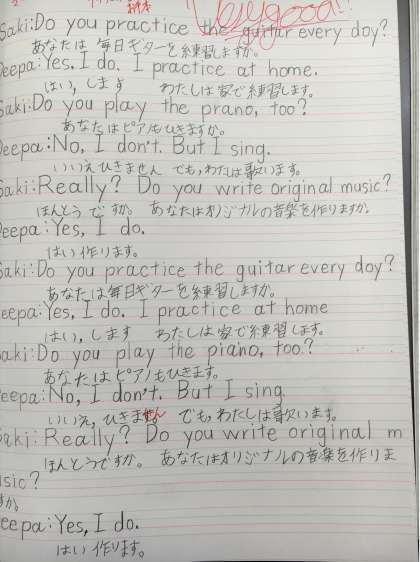 Very good!!
Saki: Do you practice the guitar every doy?
あなたは 毎日ギターを練習しますか。
Deepa: Yes, I do. I practice at home.
はい, します わたしは家で練習します。
Saki: Do you play the prano, too?
あなたはピアノもひきますか。
Deepa: No, I don't. But I sing.
いいえひきません でも,わたしは歌います。
Saki: Really? Do you write original music?
ほんとうですか。 あなたはオリジナルの音楽を作りますか。
Deepa: Yes, I do.
はい作ります。
Saki: Do you practice the guitar every day?
あなたは毎日ギターを練習しますか。
Deepa: Yes, I do. I practice at home
はい, します わたしは家で練習します。
Saki: Do you play the piano, too?
あなたはピアノもひきます。
Deepa: No, I don't. But I sing.
いいえ,ひきません でも,わたしは歌います。
Saki: Really? Do you write original m
ほんとうですか。 あなたはオリジナルの音楽を作りま
usic?
すか。
Deepa: Yes, I do.
はい 作ります。